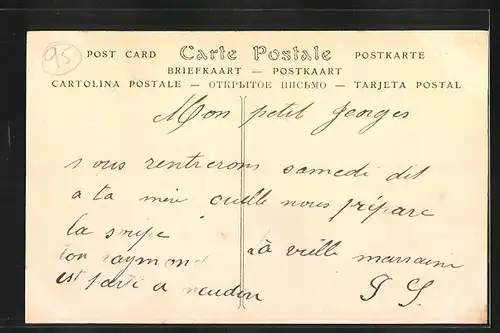 95
POST CARD Carte Postale POSTKARTE
BRIEFKAART — POSTKAART
CARTOLINA POSTALE — ОТКРЫТОЕ ПИСЬМО — TARJETA POSTAL
Mon petit Georges
nous rentrerons samedi dit
a ta mère quelle nous prépare
la soupe
ton raymond
est parti a meudon
ta vieille marraine